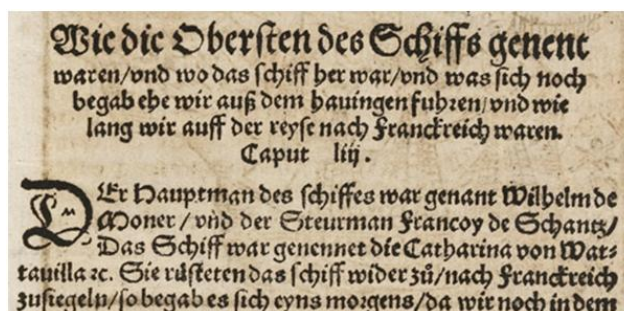 Wie die Obersten des Schiffs genent
waren/vnd wo das schiff her war/vnd was sich noch
begab ehe wir auß dem hauingen fuhren/vnd wie
lang wir auff der reyse nach Franckreich waren.
Caput liij.
DEr Hauptman des schiffes war genant Wilhelm de
Moner / vñd der Steurman Francoy de Schantz/
Das Schiff war genennet die Catharina von Wat⸗
tauilla ꝛc. Sie rüsteten das schiff wider zů/nach Franckreich
zusiegeln/so begab es sich eyns morgens/da wir noch in dem